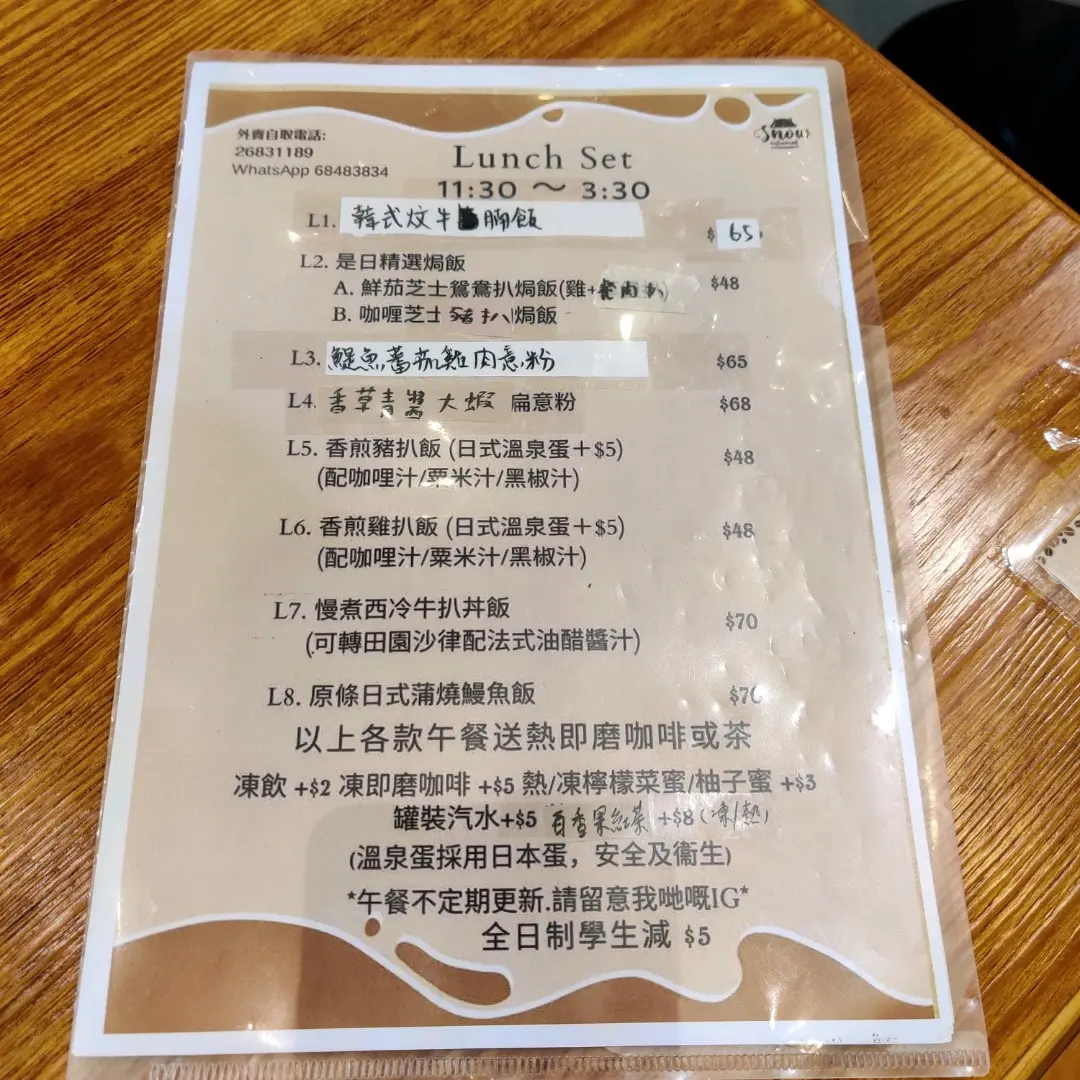 外賣自取電話:
26831189
WhatsApp 68483834
Snow
Lunch Set
11:30 ~ 3:30
L1. 韓式炆牛腩飯 $65
L2. 是日精選焗飯
A. 鮮茄芝士鴛鴦扒焗飯(雞+餐肉扒) $48
B. 咖喱芝士豬扒焗飯
L3. 鯷魚蕃茄雞肉意粉 $65
L4. 香草青醬大蝦 扁意粉 $68
L5. 香煎豬扒飯 (日式溫泉蛋+$5) $48
(配咖哩汁/粟米汁/黑椒汁)
L6. 香煎雞扒飯 (日式溫泉蛋+$5) $48
(配咖哩汁/粟米汁/黑椒汁)
L7. 慢煮西冷牛扒丼飯 $70
(可轉田園沙律配法式油醋醬汁)
L8. 原條日式蒲燒鰻魚飯 $70
以上各款午餐送熱即磨咖啡或茶
凍飲 +$2 凍即磨咖啡 +$5 熱/凍檸檬菜蜜/柚子蜜 +$3
罐裝汽水+$5 百香果紅茶 +$8(凍/熱)
(溫泉蛋採用日本蛋，安全及衞生)
*午餐不定期更新.請留意我哋嘅IG*
全日制學生減 $5